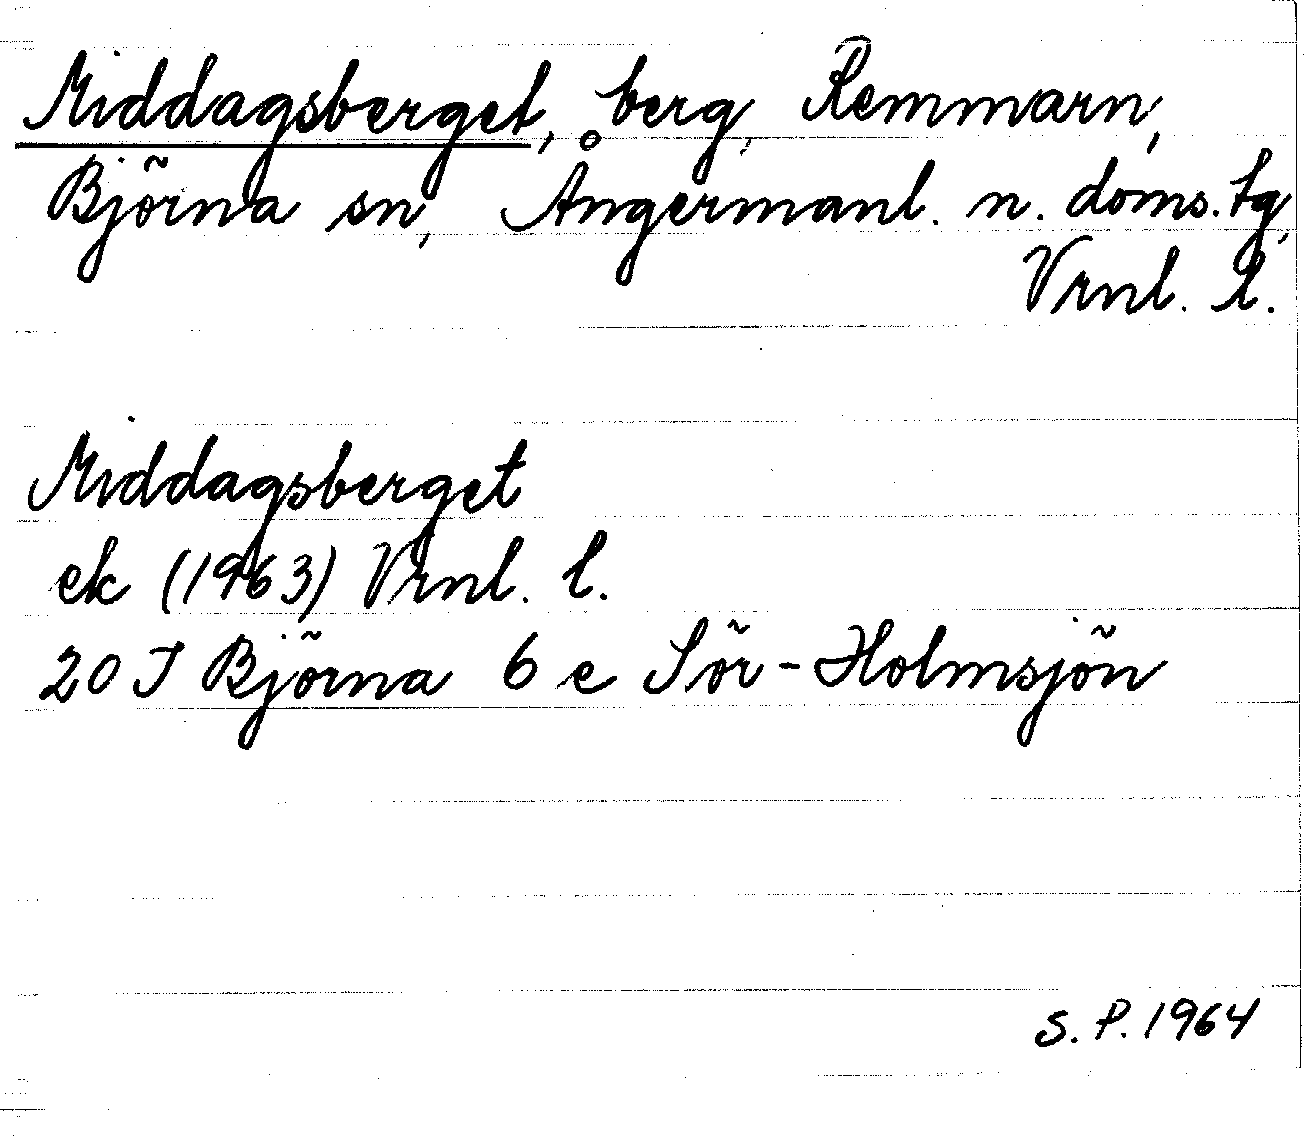 Middagsberget, berg, Remmarn,
Björna sn, Ångermanl. n. doms. tg,
Vrnl. l.
Middagsberget
ek (1963) Vrnl. l.
20 J Björna 6 e Sör-Holmsjön
S. P. 1964